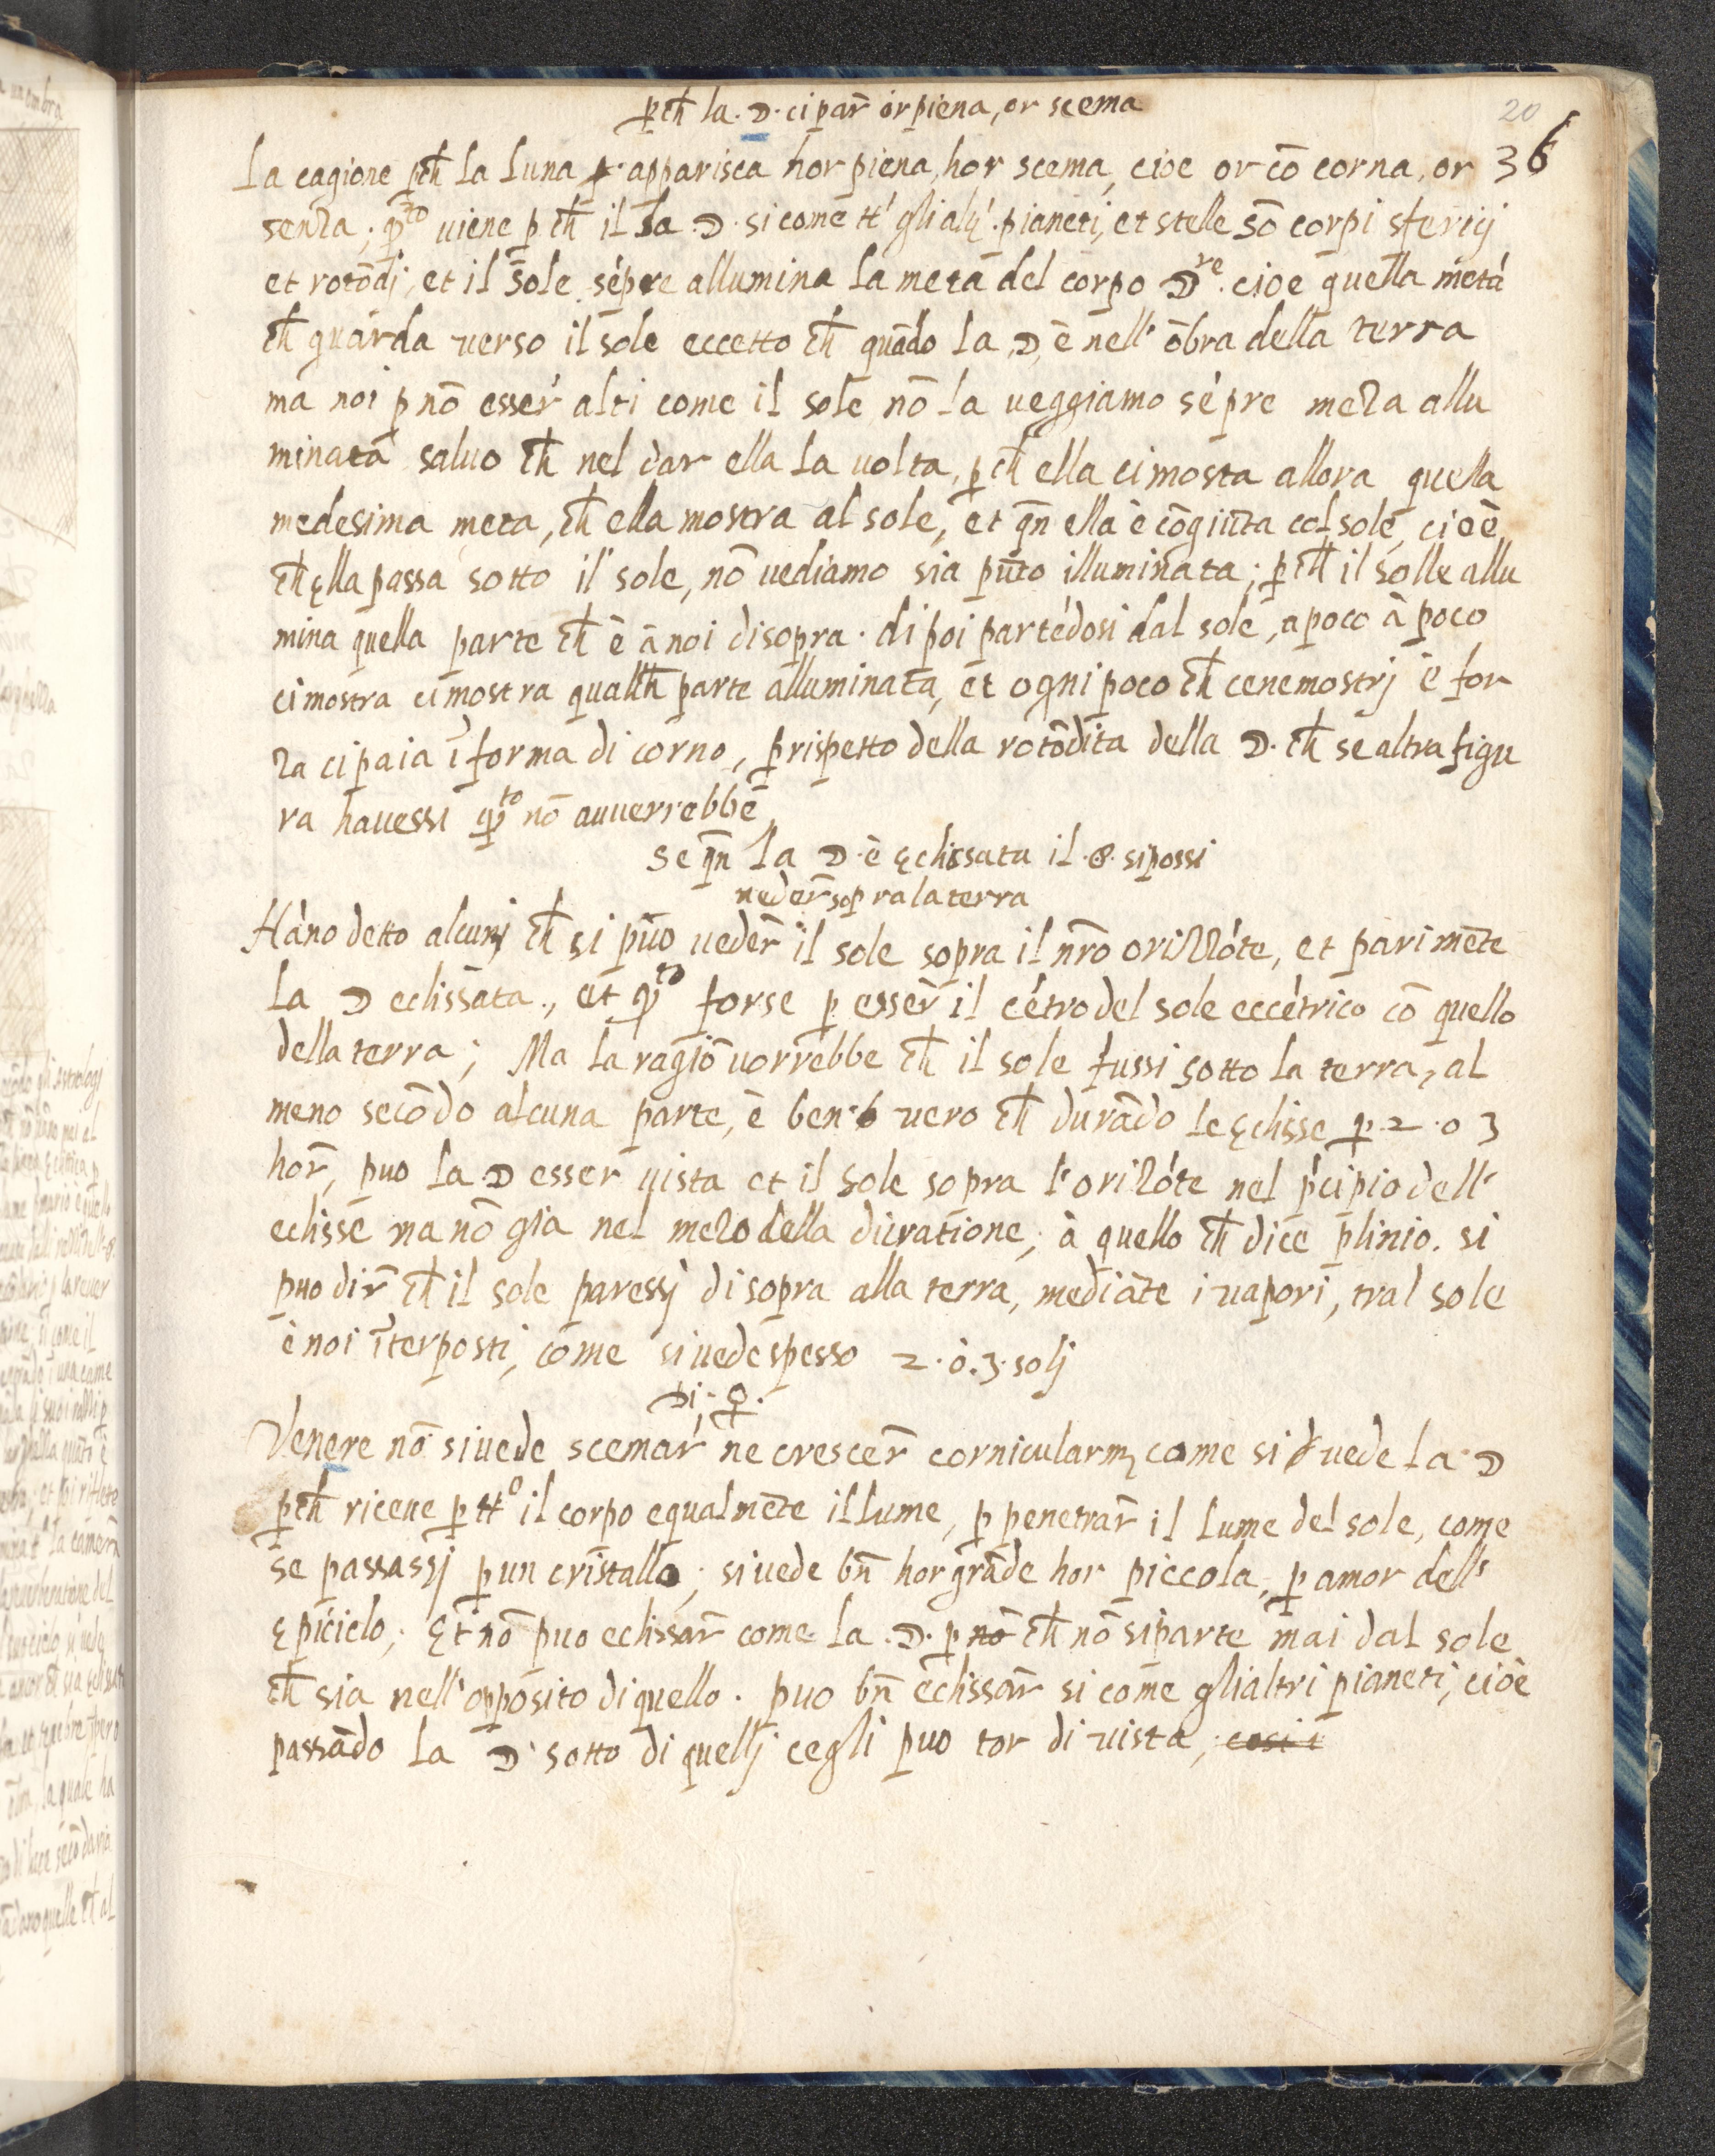 20
p̱ch̄ la ☽ ci par̄ or piena, or scema
La cagione p̱ch̄ La Luna apparisca hor piena, hor scema, cioe or cō corna, or 36
senza; q̄sto uiene p̱ ch̄ il La ☽ si come tt' gli alt' pianeti, et stelle sō corpi sferiij
et rotōdi, et il sole sēpre allumina la metà del corpo ☽re cioe quella metà
ch̄ guarda uerso il sole eccetto ch̄ quādo la ☽ è nell' ōbra della terra
ma noi p̱ nō esser̄ alti come il sole nō la ueggiamo sēpre meza allu
minata saluo ch̄ nel dar ella la uolta, p̱ch̄ ella ci mosta allora quella
medesima meta, ch̄ ella mostra al sole, et qn̄ ella è cōgiūta col sole, cioè
ch̄ ella passa sotto il sole, nō uediamo sia pūto illuminata; p̱ch̄ il solle allu
mina quella parte ch̄ è à noi disopra. di poi partēdosi dal sole, a poco à poco
ci mostra ci mostra qualch̄ parte alluminata, et ogni poco ch̄ cenemostrj è for
za ci paia ī forma di corno, p̱ rispetto della rotōdita della ☽. ch̄ se altra figu
ra hauessi q̄sto nō auuerrebbe
Se qn̄ La ☽ è eclissata il ☉ si possi
ueder̄ sopra la terra
Hāno detto alcunj ch̄ si può ueder̄ il sole sopra il nr̄o orizzōte, et parimēte
La ☽ eclissata, et q̄sto forse p̱ esser̄ il cētro del sole eccētrico cō quello
della terra; Ma la ragiō uorrebbe ch̄ il sole fussi sotto la terra, al
meno secōdo alcuna parte, è ben uero ch̄ durādo le eclisse p̱ 2 o 3
hor̄, puo la ☽ esser uista et il sole sopra l'orizōte nel p̄cipio dell'
eclisse ma nō gia nel mezo della duratione; à quello ch̄ dice plinio. si
puo dir̄ ch̄ il sole paressj di sopra alla terra, mediāte i uapori, tral sole
è noi īterposti, come si uede spesso 2. ò. 3. solj
Di. ♀.
Venere nō si uede scemar̄ ne crescer̄ cornicularm̄ come si uede la ☽
p̱ch̄ riceue p̱ tto il corpo equalmēte il lume, p̱ penetrar̄ il lume del sole, come
se passassj p̱ un cristallo; si uede bn̄ hor grāde hor piccola, p̱ amor dell'
Epiciclo; Et nō puo eclissar̄ come la ☽. p̱ nō ch̄ nō si parte mai dal sole
ch̄ sia nell'opposito di quello. puo bn̄ eclissar̄ si come gli altri pianeti, cioè
passādo la ☽ sotto di quellj cegli puo tor di uista; cosi i